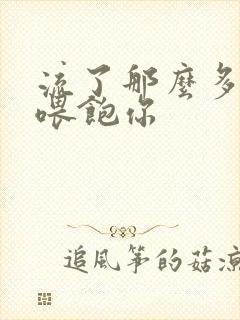 流了那麼多
喂飽你
追風箏的菇涼